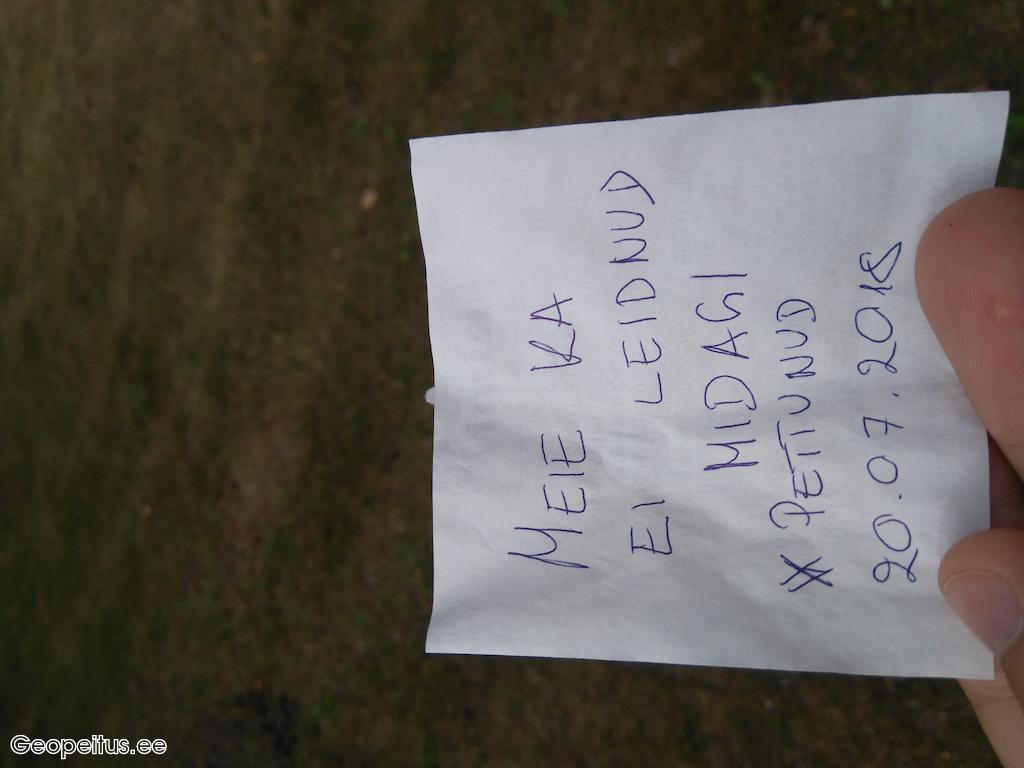 MEIE KA
EI LEIDNUD
MIDAGI
* PETTUNUD
20.07.2018
Geopeitus.ee